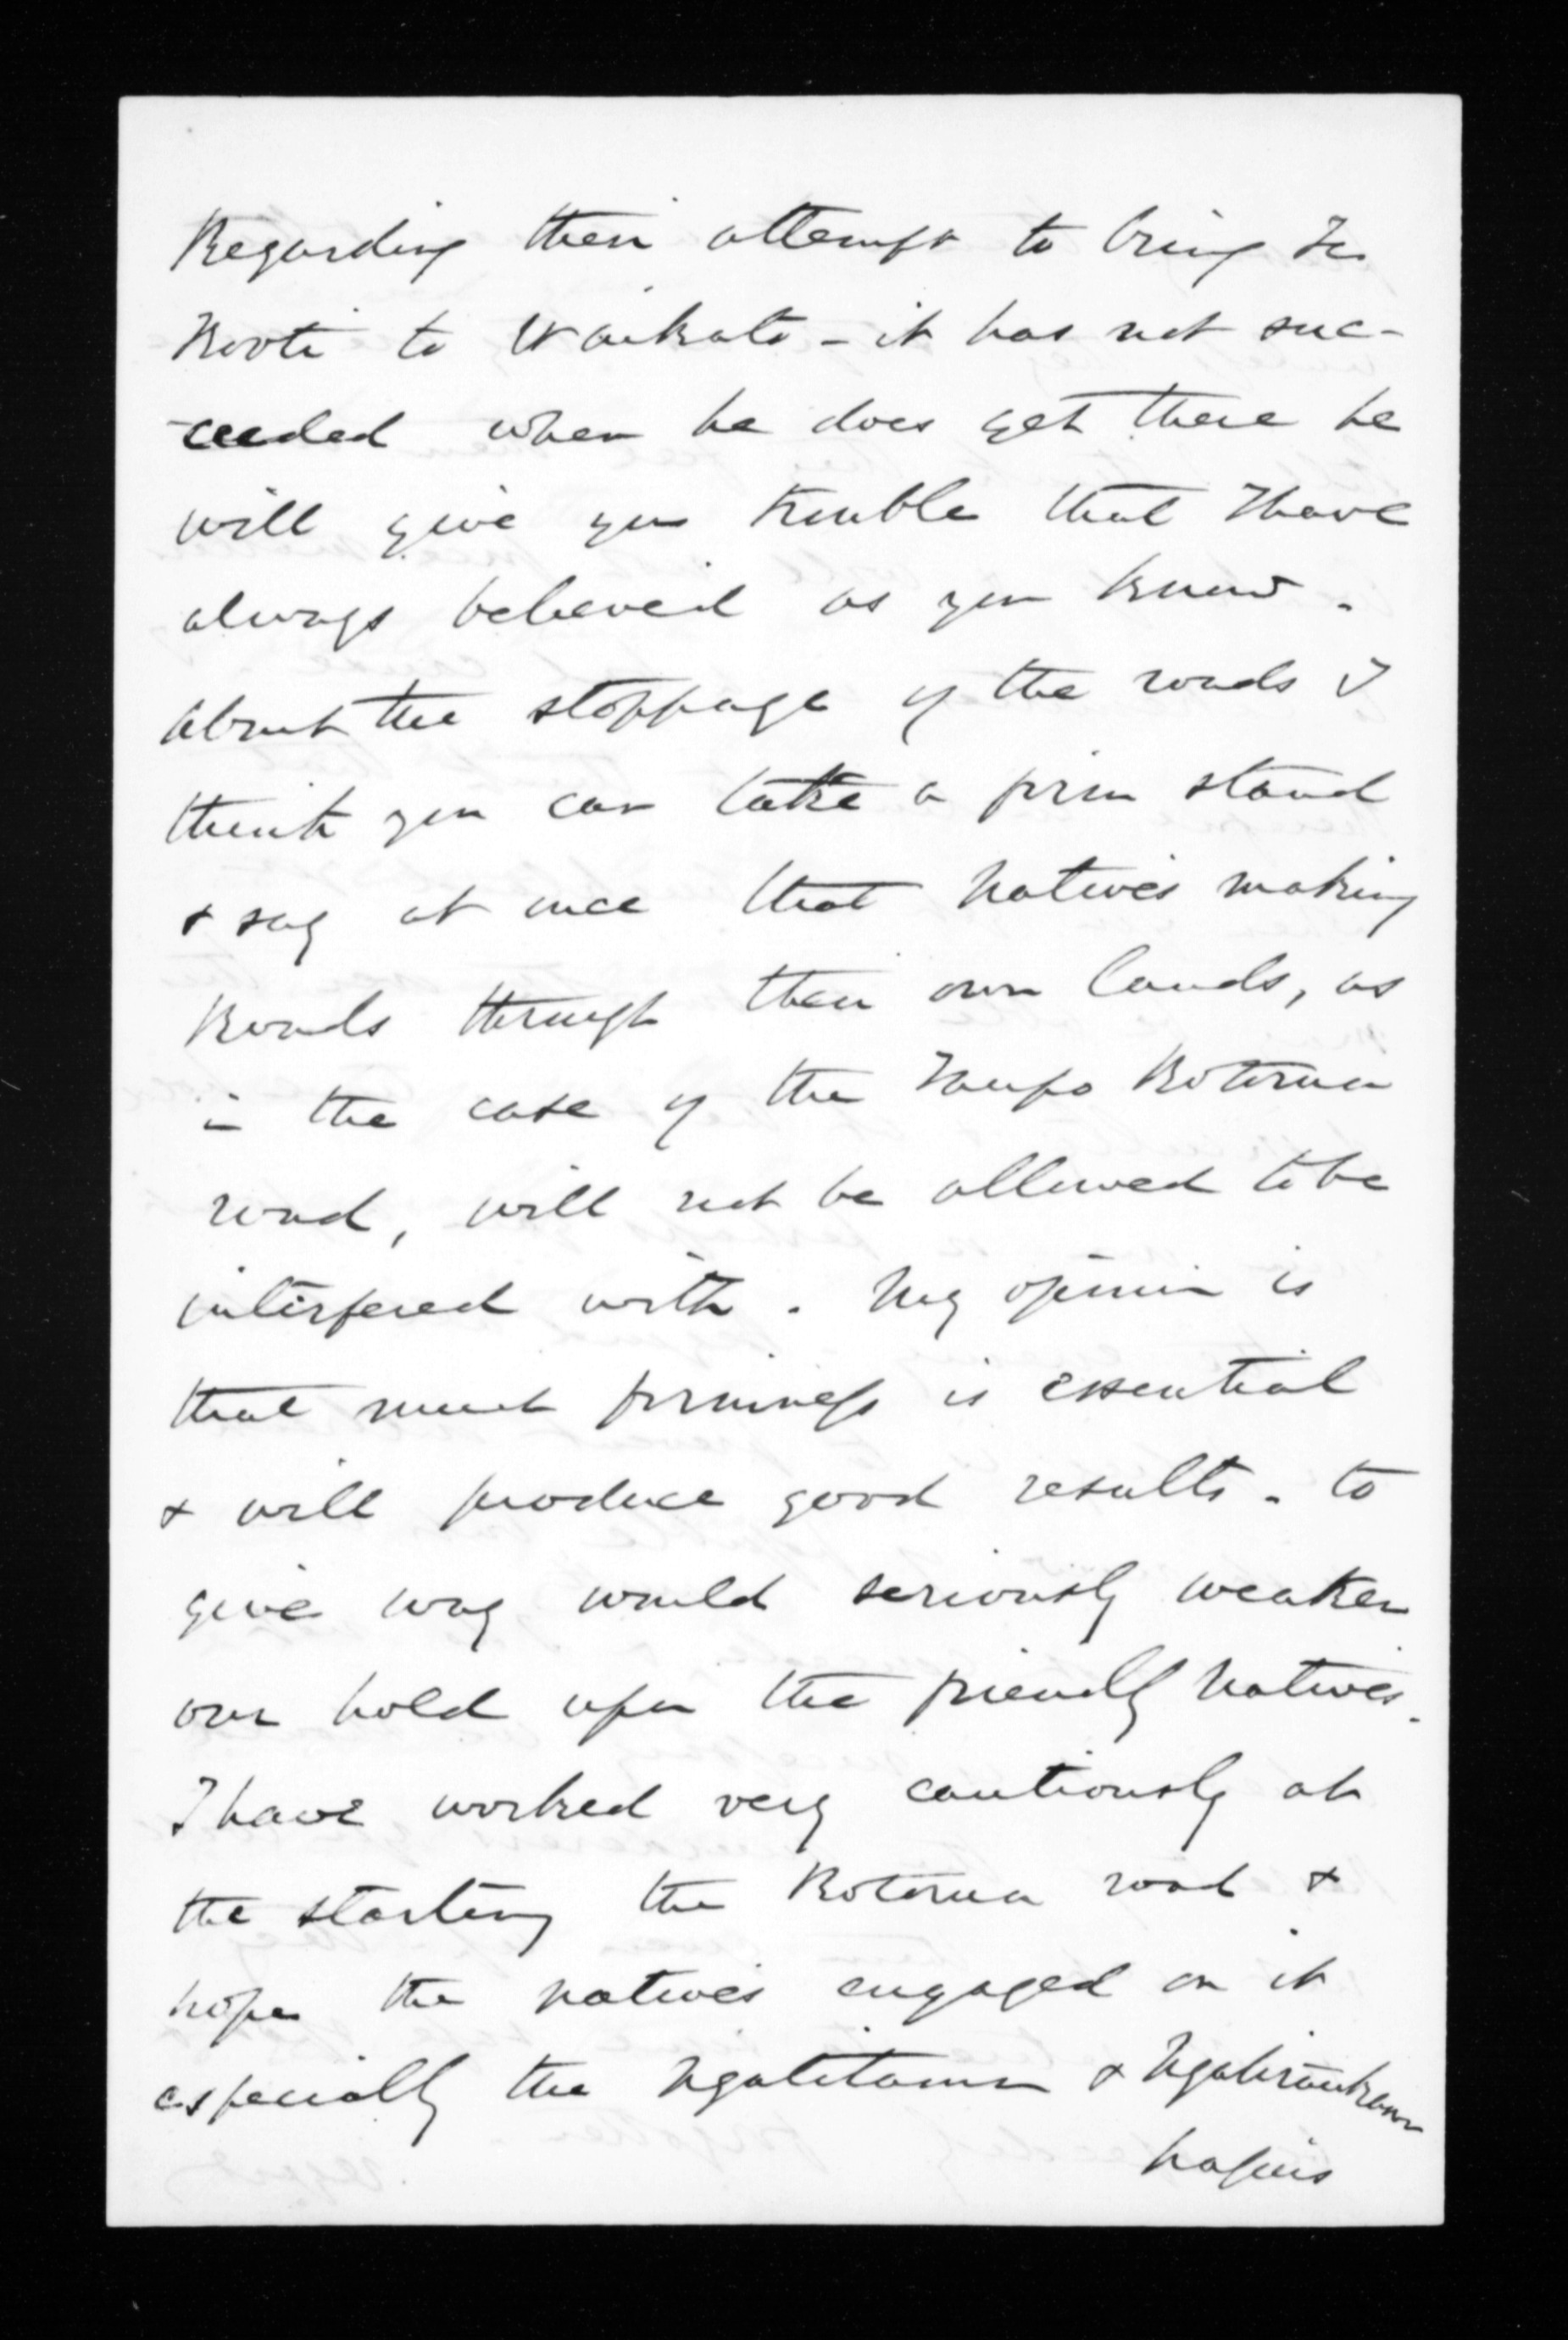 Regarding their attempt to bring Te
Kooti to Waikato - it has not suc-
-ceeded when he does get there he
will give you trouble that I have
always believed as you know.
About the stoppage of the roads I
think you can take a firm stand
& say at once that Natives making
Roads through their own lands, as
in the case of the Taupo Rotorua
road, will not be allowed to be
interfered with. My opinion is
that much firmness is essential
& will produce good results. to
give way would seriously weaken
our hold upon the friendly Natives.
I have worked very cautiously at
the starting the Rotorua road &
hope the natives engaged on it
especially the Ngatitama &
hapus